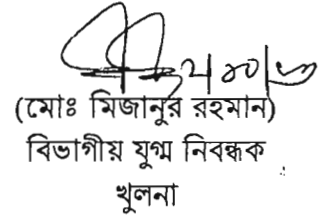 (মোঃ মিজানুর রহমান)
বিভাগীয় যুগ্ম নিবন্ধক
খুলনা